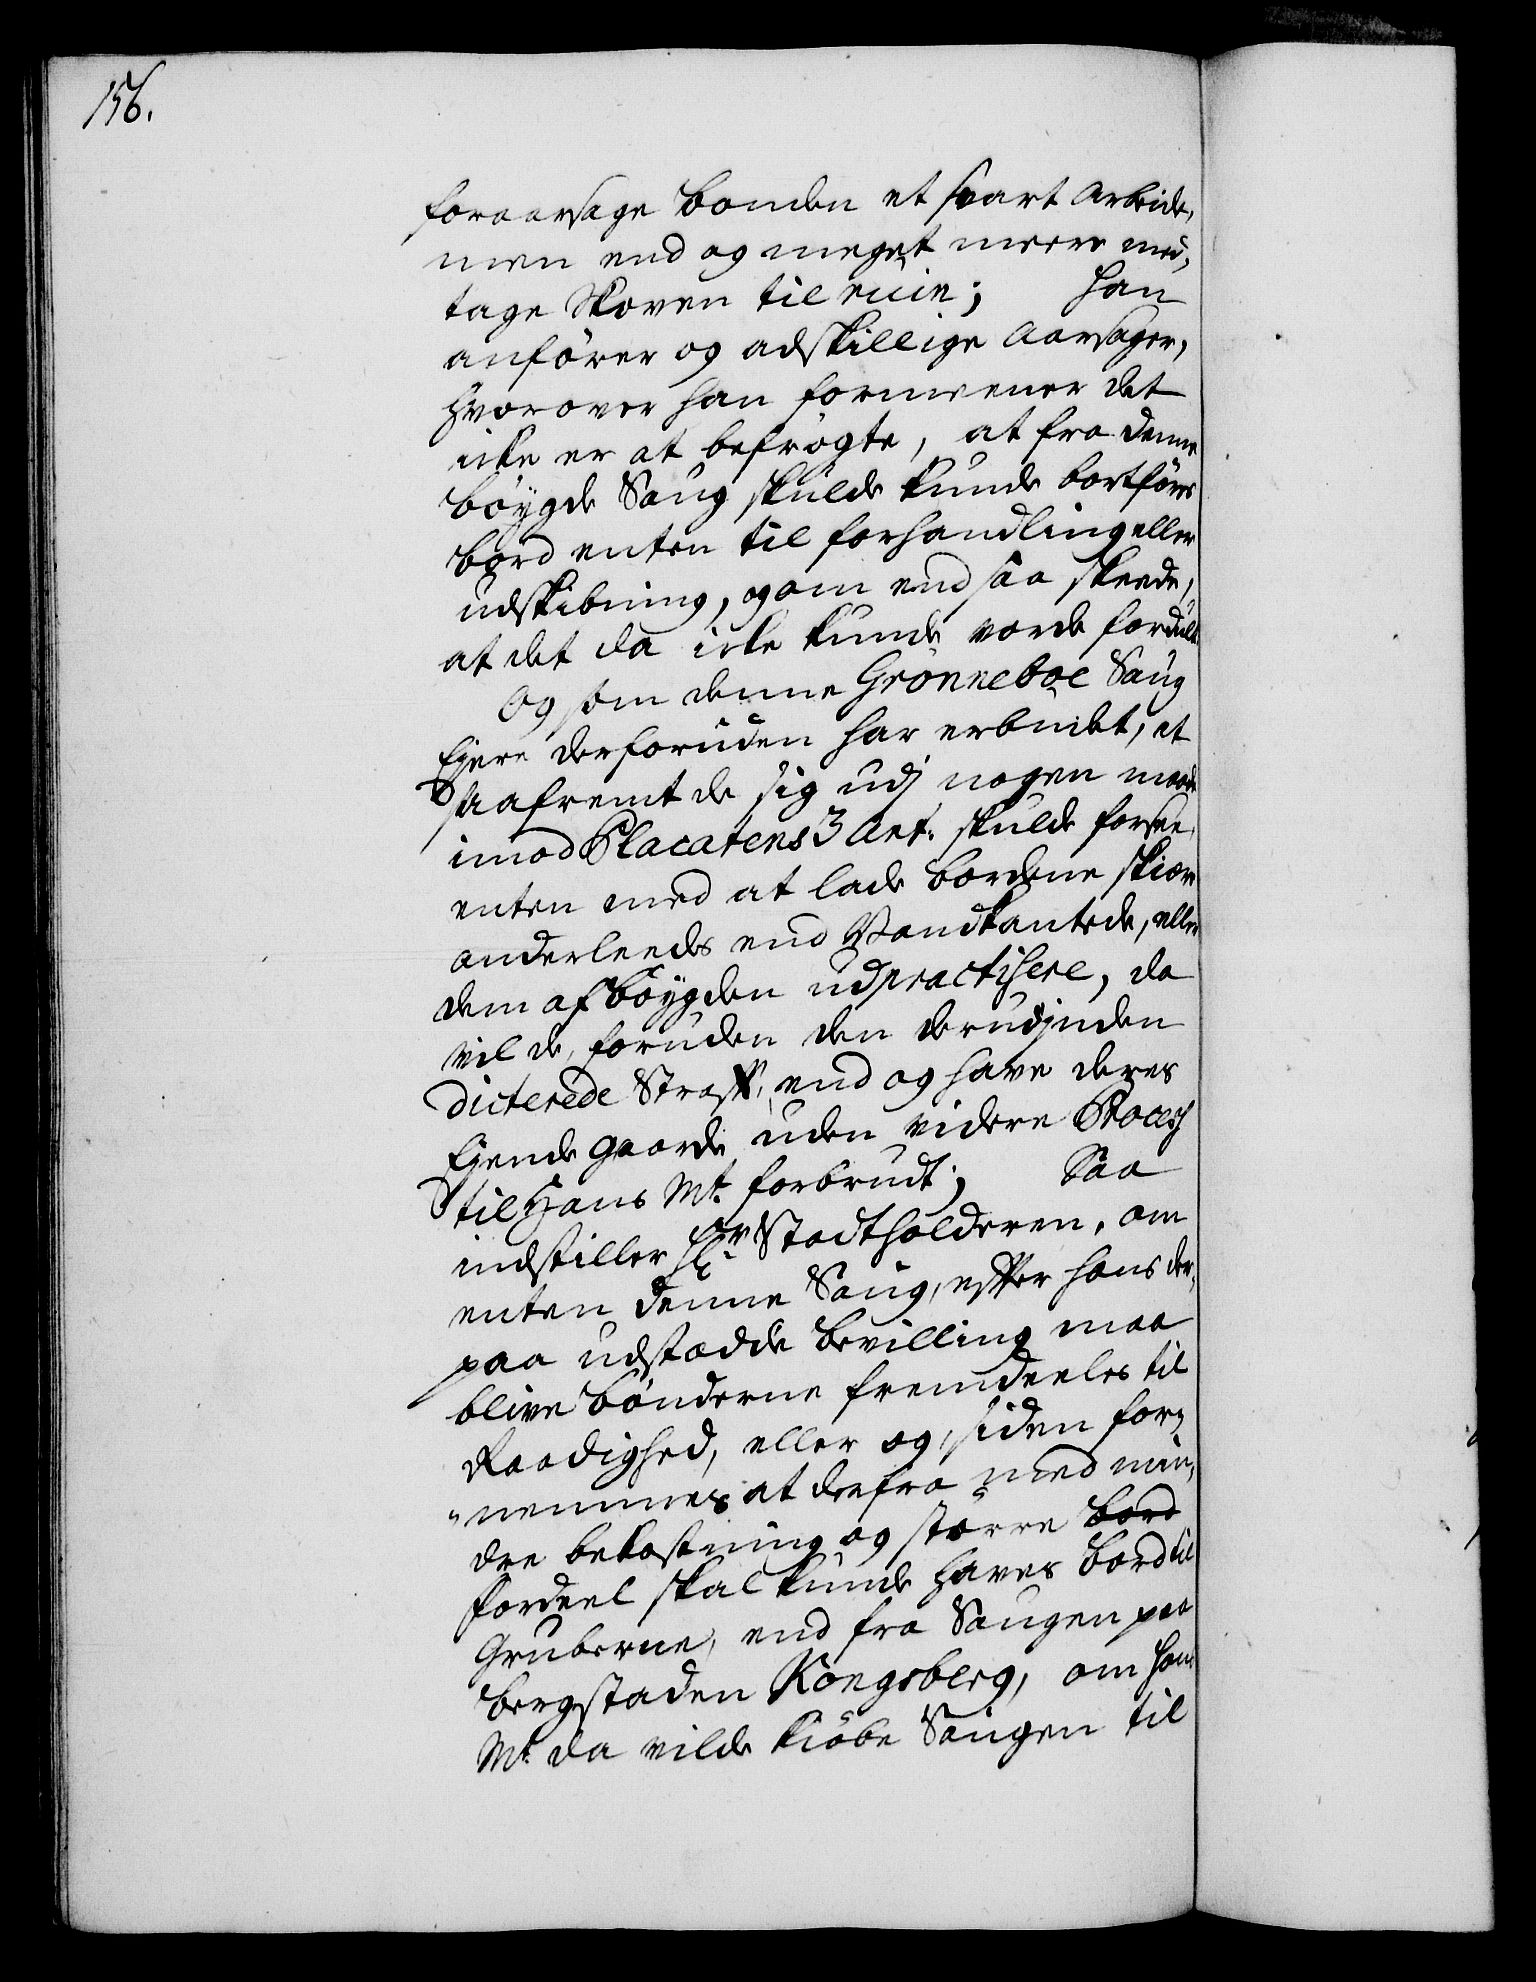 156.
foraarsage bonden et svart Arbeide,
men end og meget meere med,
tage Skoven til ruin; han
anfører og adskillige Aarsager,
hvorover han formeener det
icke er at befrøgte, at fra denne
bøygde Saug skulde kunde bortføres
bord enten til forhandling eller
udskibning, og om end saa skeede,
at det da icke kunde vorde fordult
Og som denne Grønneboe Saug
Ejere derforuden har erbudet, at
saafremt de sig udj nogen maade
imod Placatens 3 Art. skulde forsee,
enten med at lade bordene skiære
anderleedes end Vandkantede, eller
dem af bøygden udpractisere, da
vil de, foruden den derudjnden
dicterede Straff, end og have deres
Ejende gaarde uden videre Process
til Hans Mt. forbrudt; Saa
indstiller Hr. Stadtholderen, om
enten denne Saug, efter hans der,
paa udstædde bevilling maa
blive bønderne fremdeeles til
Raadighed, eller og, siden for,
nemmes at derfra med min,
dre bekostning og større bord
fordeel skal kunde haves bord til
Gruberne, end fra Saugen paa
bergstaden Kongsberg, om hans
Mt. da vilde kiøbe Saugen til